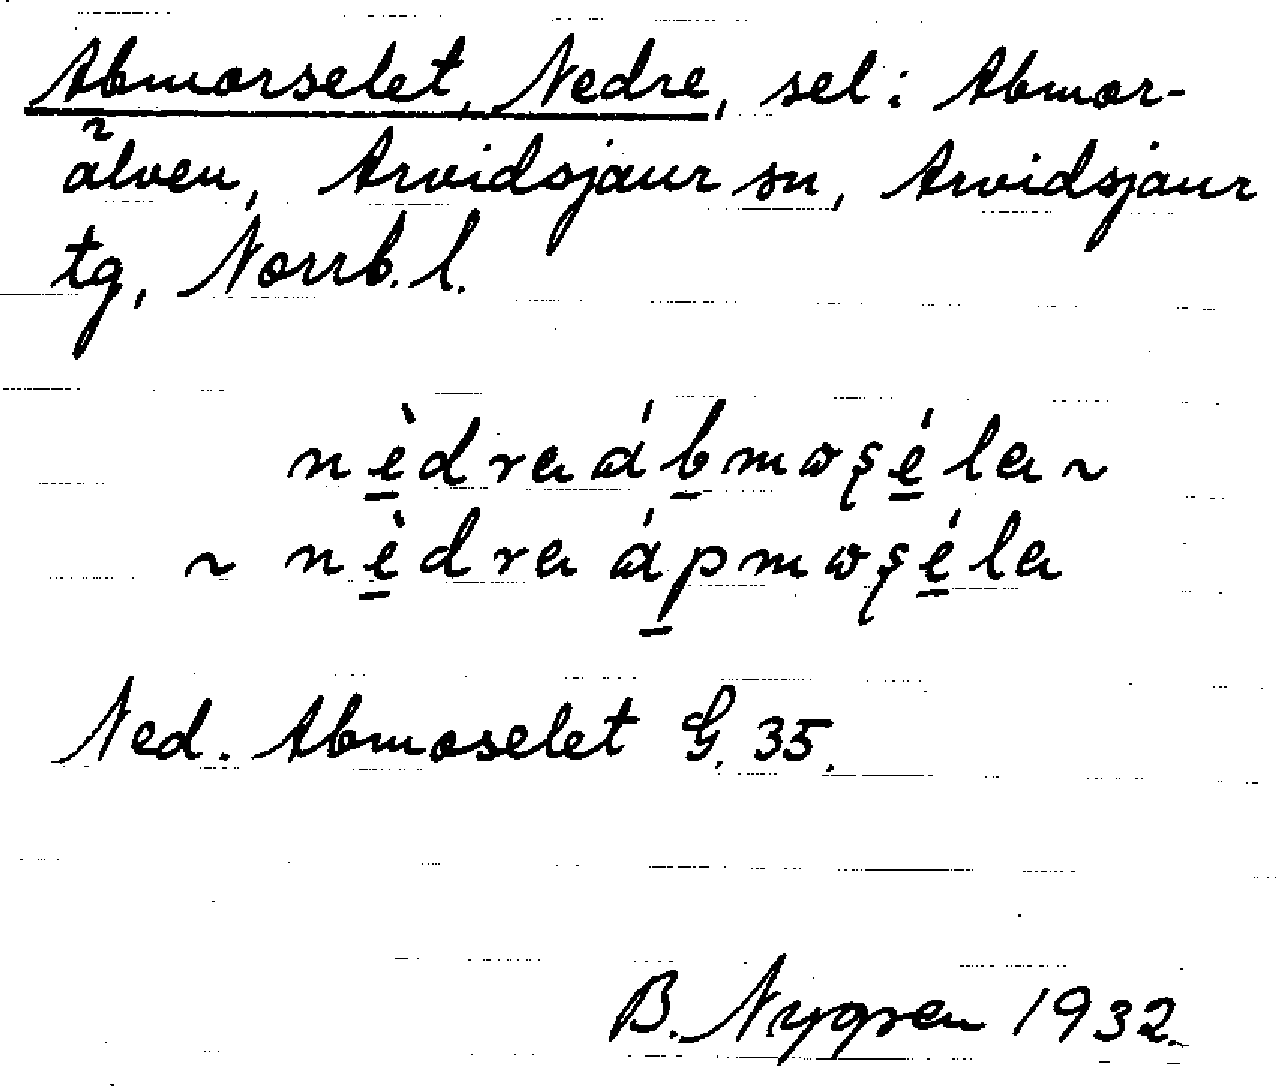 Abmorselet, Nedre, sel i Abmor-
älven, Arvidsjaur sn, Arvidsjaur
tg, Norrb. l.
nèdra ábmoséla ~
~ nèdra ápmoséla
Ned. Abmoselet G. 35.
B. Nygren 1932.